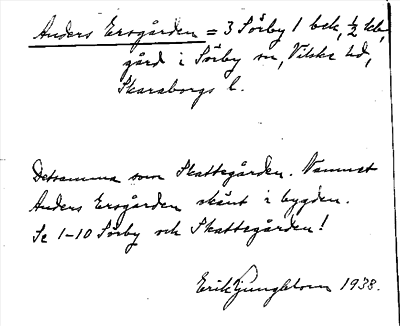 Anders Ersgården = 3 Sörby 1 bck, ½ kb,
gård i Sörby sn, Vilske hd,
Skaraborgs l.
Detsamma som Skattegården. Namnet
Anders Ersgården känt i bygden.
Se 1-10 Sörby och Skattegården!
Erik Ljungblom 1938.